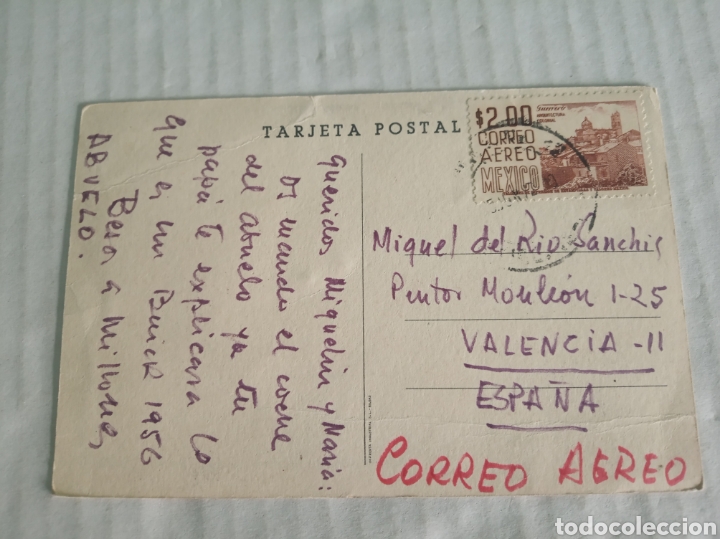 TARJETA POSTAL
Guerrero
ARQUITECTURA
COLONIAL
$2.00
CORREO
AEREO
MEXICO
Queridos Miguelin y Maria:
Os mando el coche
del abuelo ya tu
papá te explicara lo
que es un Buick 1956
Besos a Millones,
ABUELO.
Miguel del Rio Sanchis
Pintor Monleón 1-25
VALENCIA -11
ESPAÑA
CORREO AEREO
todocoleccion